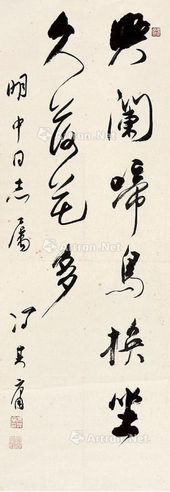 興闌啼鳥換坐
久落花多
明中同志屬
馮其庸
Artron.Net
Artron.Net